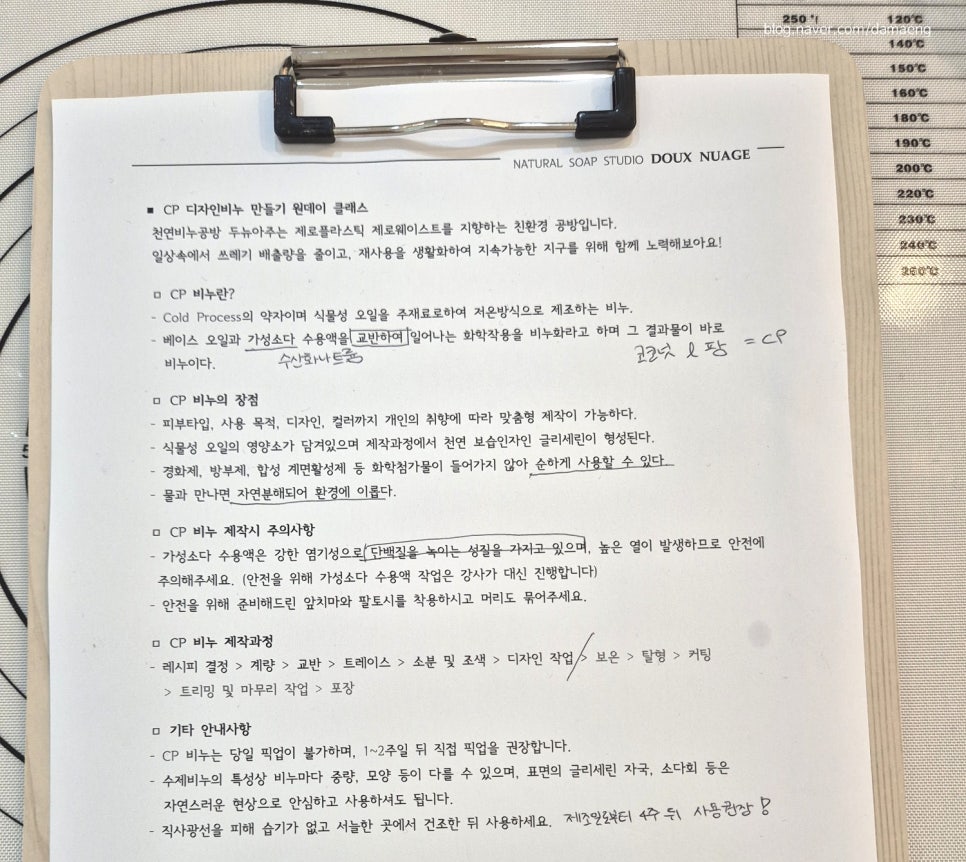 250 °F 120℃
blog.naver.com/damaong
140℃
150℃
160℃
180℃
190℃
200℃
220℃
230℃
240℃
260℃
NATURAL SOAP STUDIO DOUX NUAGE
■ CP 디자인비누 만들기 원데이 클래스
천연비누공방 두뉴아주는 제로플라스틱 제로웨이스트를 지향하는 친환경 공방입니다.
일상속에서 쓰레기 배출량을 줄이고, 재사용을 생활화하여 지속가능한 지구를 위해 함께 노력해보아요!
□ CP 비누란?
- Cold Process의 약자이며 식물성 오일을 주재료로하여 저온방식으로 제조하는 비누.
- 베이스 오일과 가성소다 수용액을 교반하여 일어나는 화학작용을 비누화라고 하며 그 결과물이 바로
비누이다.
수산화나트륨
코코넛 & 팜 = CP
□ CP 비누의 장점
- 피부타입, 사용 목적, 디자인, 컬러까지 개인의 취향에 따라 맞춤형 제작이 가능하다.
- 식물성 오일의 영양소가 담겨있으며 제작과정에서 천연 보습인자인 글리세린이 형성된다.
- 경화제, 방부제, 합성 계면활성제 등 화학첨가물이 들어가지 않아 순하게 사용할 수 있다.
- 물과 만나면 자연분해되어 환경에 이롭다.
□ CP 비누 제작시 주의사항
- 가성소다 수용액은 강한 염기성으로 단백질을 녹이는 성질을 가지고 있으며, 높은 열이 발생하므로 안전에
주의해주세요. (안전을 위해 가성소다 수용액 작업은 강사가 대신 진행합니다)
- 안전을 위해 준비해드린 앞치마와 팔토시를 착용하시고 머리도 묶어주세요.
□ CP 비누 제작과정
- 레시피 결정 > 계량 > 교반 > 트레이스 > 소분 및 조색 > 디자인 작업 > 보온 > 탈형 > 커팅
> 트리밍 및 마무리 작업 > 포장
□ 기타 안내사항
- CP 비누는 당일 픽업이 불가하며, 1~2주일 뒤 직접 픽업을 권장합니다.
- 수제비누의 특성상 비누마다 중량, 모양 등이 다를 수 있으며, 표면의 글리세린 자국, 소다회 등은
자연스러운 현상으로 안심하고 사용하셔도 됩니다.
- 직사광선을 피해 습기가 없고 서늘한 곳에서 건조한 뒤 사용하세요. 제조일로부터 4주 뒤 사용권장!